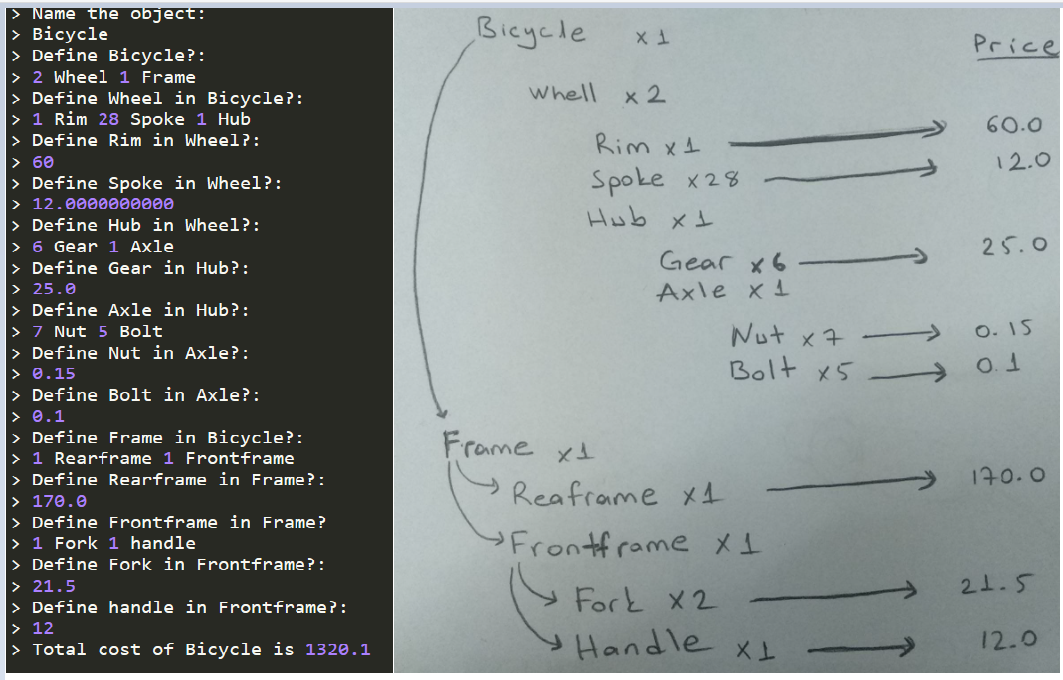 > Name the object:
> Bicycle
> Define Bicycle?:
> 2 Wheel 1 Frame
> Define Wheel in Bicycle?:
> 1 Rim 28 Spoke 1 Hub
> Define Rim in Wheel?:
> 60
> Define Spoke in Wheel?:
> 12.0000000000
> Define Hub in Wheel?:
> 6 Gear 1 Axle
> Define Gear in Hub?:
> 25.0
> Define Axle in Hub?:
> 7 Nut 5 Bolt
> Define Nut in Axle?:
> 0.15
> Define Bolt in Axle?:
> 0.1
> Define Frame in Bicycle?:
> 1 Rearframe 1 Frontframe
> Define Rearframe in Frame?:
> 170.0
> Define Frontframe in Frame?
> 1 Fork 1 handle
> Define Fork in Frontframe?:
> 21.5
> Define handle in Frontframe?:
> 12
> Total cost of Bicycle is 1320.1
Bicycle x 1
Price
Whell x 2
Rim x 1 → 60.0
Spoke x 28 → 12.0
Hub x 1
Gear x 6 → 25.0
Axle x 1
Nut x 7 → 0.15
Bolt x 5 → 0.1
Frame x1
Reaframe x1 → 170.0
Frontframe x 1
Fork x 2 → 21.5
Handle x 1 → 12.0